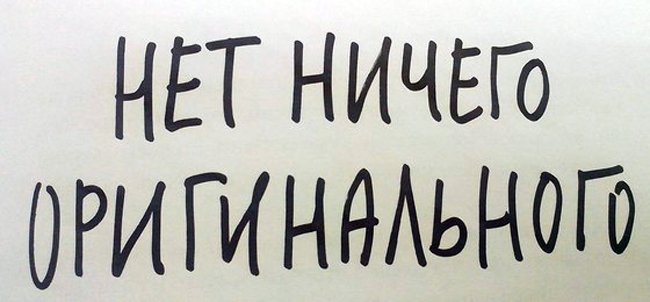 НЕТ НИЧЕГО
ОРИГИНАЛЬНОГО